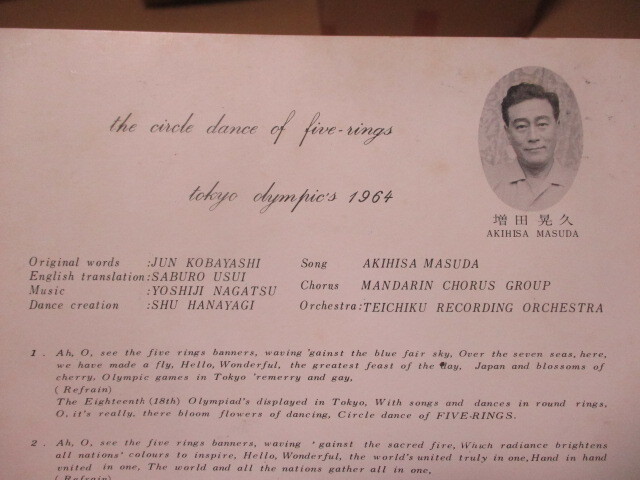 the circle dance of five-rings
tokyo olympic's 1964
増田晃久
AKIHISA MASUDA
Original words :JUN KOBAYASHI
English translation:SABURO USUI
Music :YOSHIJI NAGATSU
Dance creation :SHU HANAYAGI
Song AKIHISA MASUDA
Chorus MANDARIN CHORUS GROUP
Orchestra:TEICHIKU RECORDING ORCHESTRA
1. Ah, O, see the five rings banners, waving 'gainst the blue fair sky, Over the seven seas, here,
we have made a fly, Hello, Wonderful, the greatest feast of the day, Japan and blossoms of
cherry, Olympic games in Tokyo 'remerry and gay,
(Refrain)
The Eighteenth (18th) Olympiad's displayed in Tokyo, With songs and dances in round rings,
O, it's really, there bloom flowers of dancing, Circle dance of FIVE-RINGS.
2. Ah, O, see the five rings banners, waving 'gainst the sacred fire, Which radiance brightens
all nations' colours to inspire, Hello, Wonderful, the world's united truly in one, Hand in hand
vnited in one, The world and all the nations gather all in one,
(Refrain)